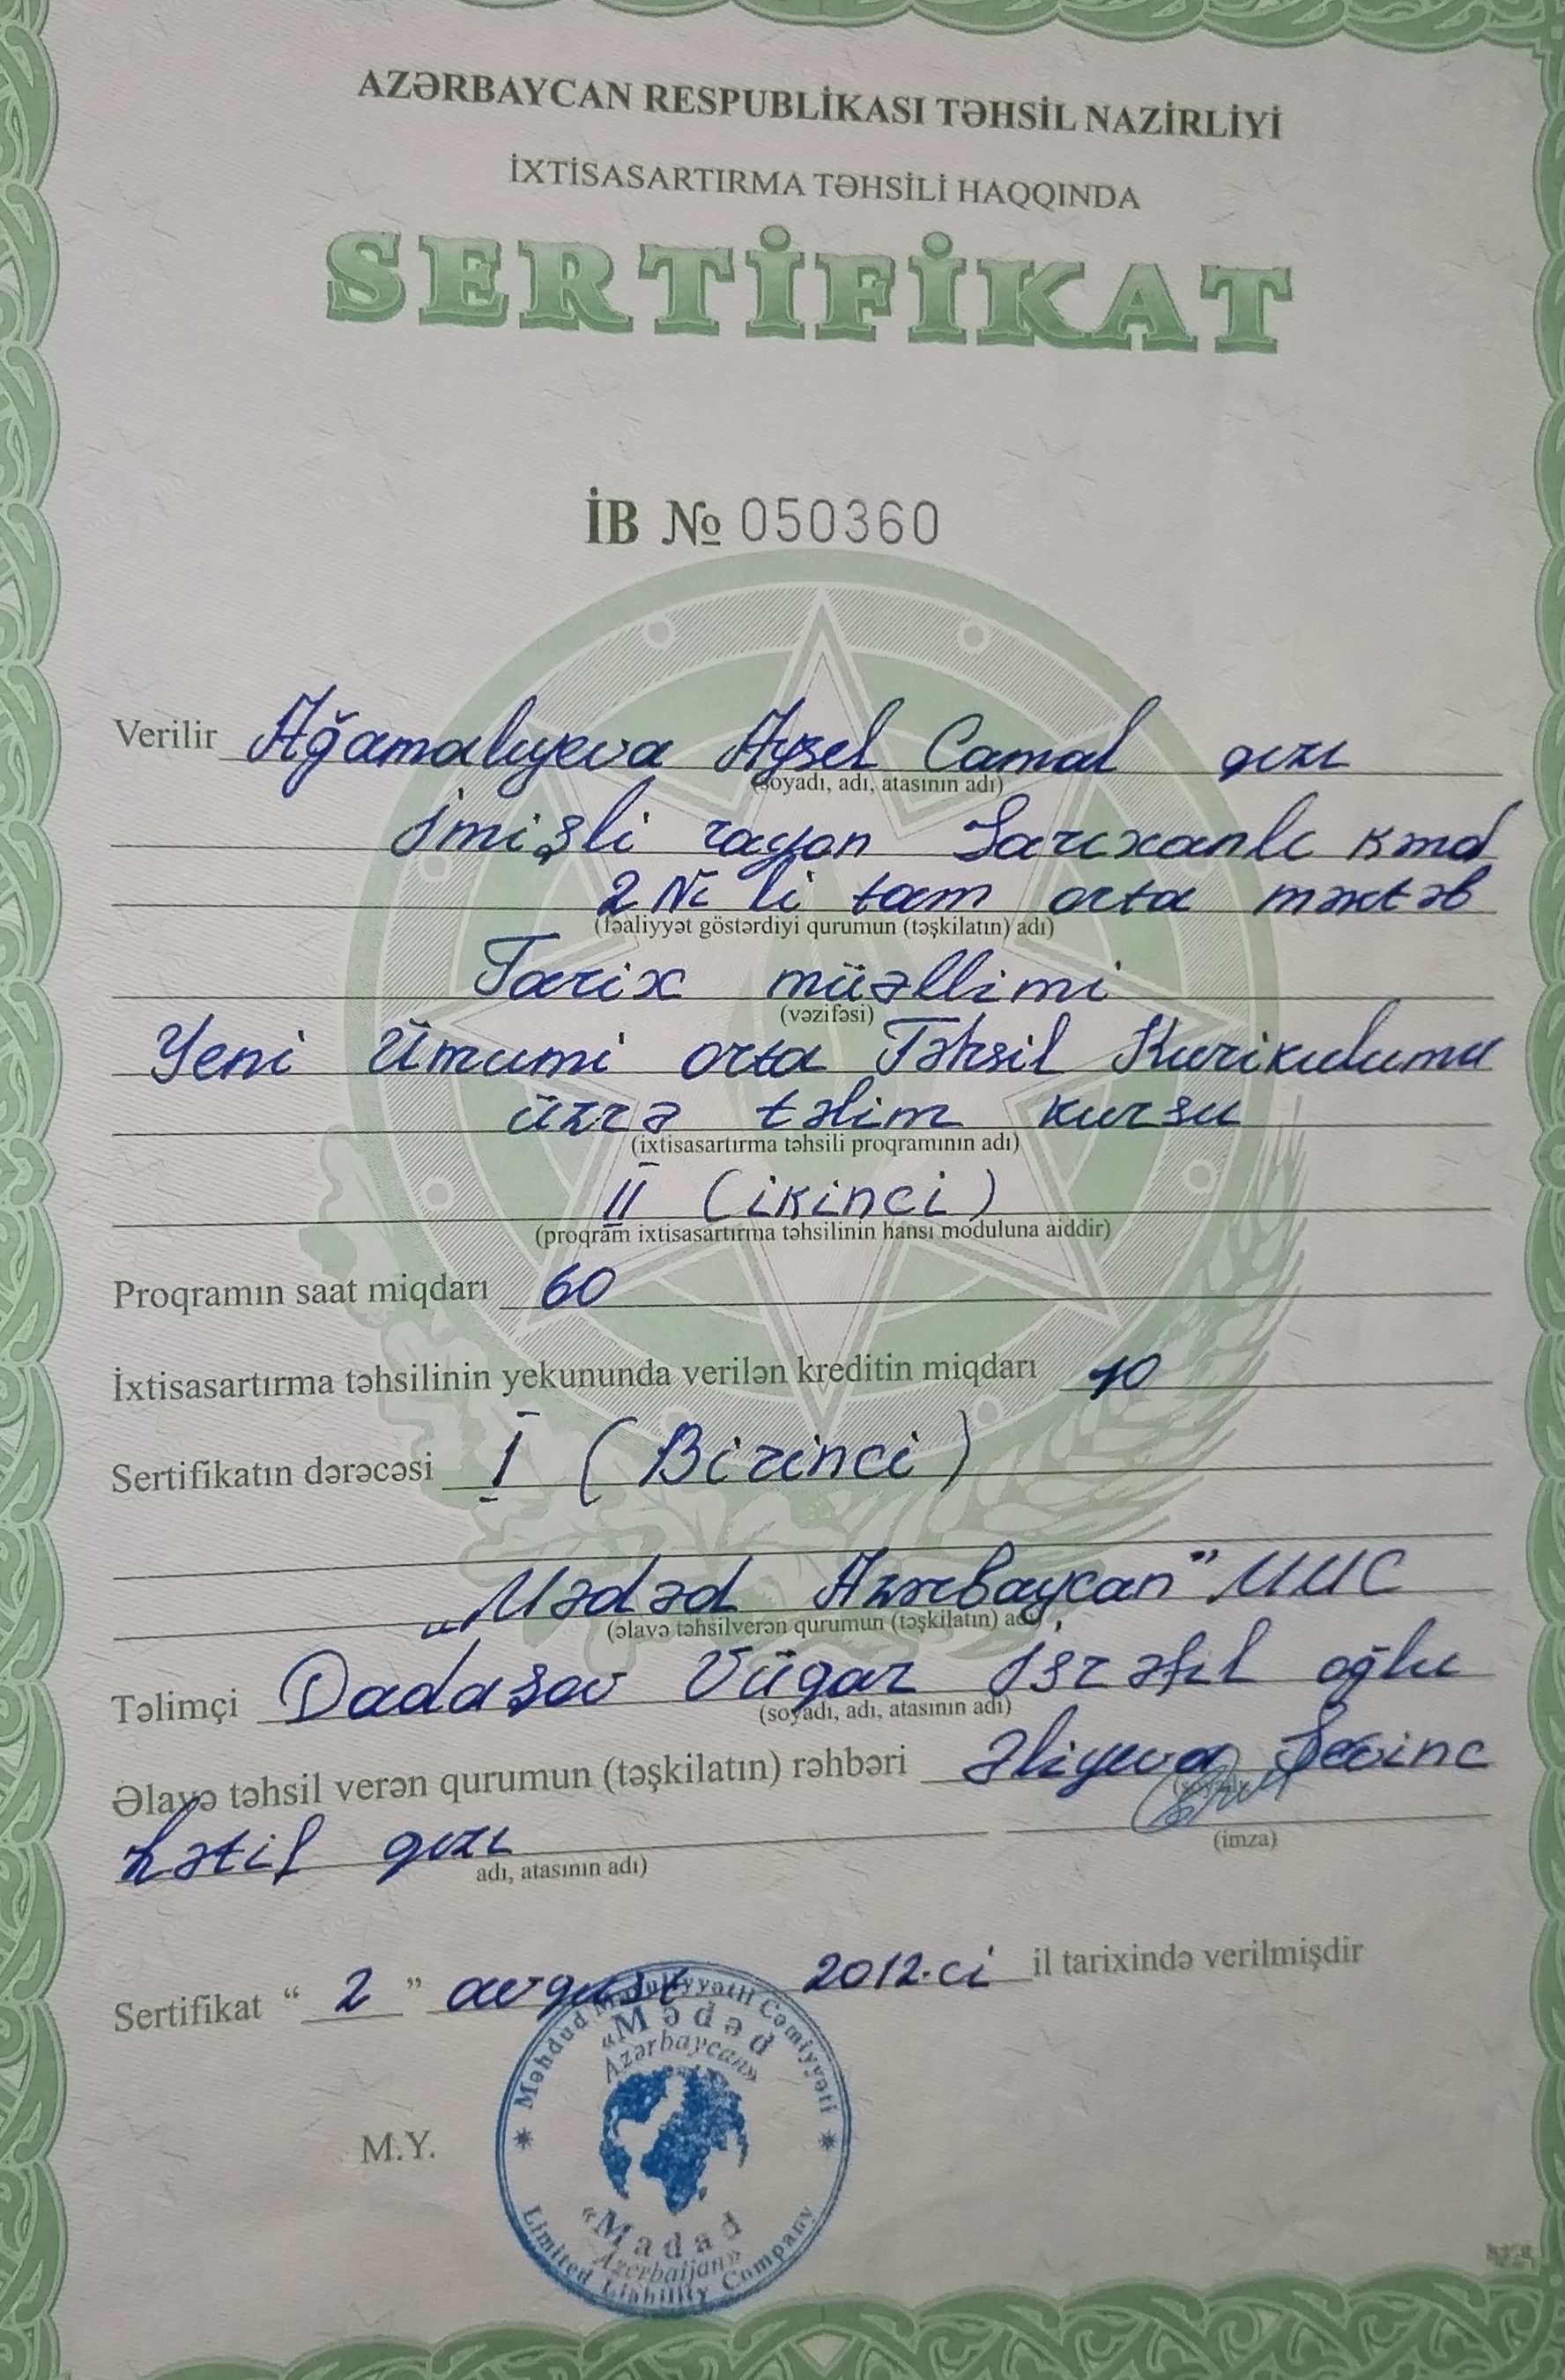 AZƏRBAYCAN RESPUBLİKASI TƏHSİL NAZİRLİYİ
İXTİSASARTIRMA TƏHSİLİ HAQQINDA
SERTİFİKAT
İB № 050360
Verilir Ağamalıyeva Aysel Camal qızı
(soyadı, adı, atasının adı)
İmişli rayon Sarıxanlı kənd
2 № li tam orta məktəb
(fəaliyyət göstərdiyi qurumun (təşkilatın) adı)
Tarix müəllimi
(vəzifəsi)
Yeni Ümumi orta Təhsil Kurikulumu
üzrə təlim kursu
(ixtisasartırma təhsili proqramının adı)
II (ikinci)
(proqram ixtisasartırma təhsilinin hansı moduluna aiddir)
Proqramın saat miqdarı 60
İxtisasartırma təhsilinin yekununda verilən kreditin miqdarı 10
Sertifikatın dərəcəsi I (Birinci)
„Mədəd Azərbaycan” MMC
(əlavə təhsilverən qurumun (təşkilatın) adı)
Təlimçi Dadaşov Vüqar İsrafil oğlu
(soyadı, adı, atasının adı)
Əlavə təhsil verən qurumun (təşkilatın) rəhbəri Əliyeva Sevinc
(imza)
Lətif qızı
adı, atasının adı)
Sertifikat “ 2 ” avqust 2012.ci il tarixində verilmişdir
M.Y.
Məhdud Məsuliyyətli Cəmiyyəti
«Mədəd
Azərbaycan»
«Madad
Azerbaijan»
Limited Liability Company